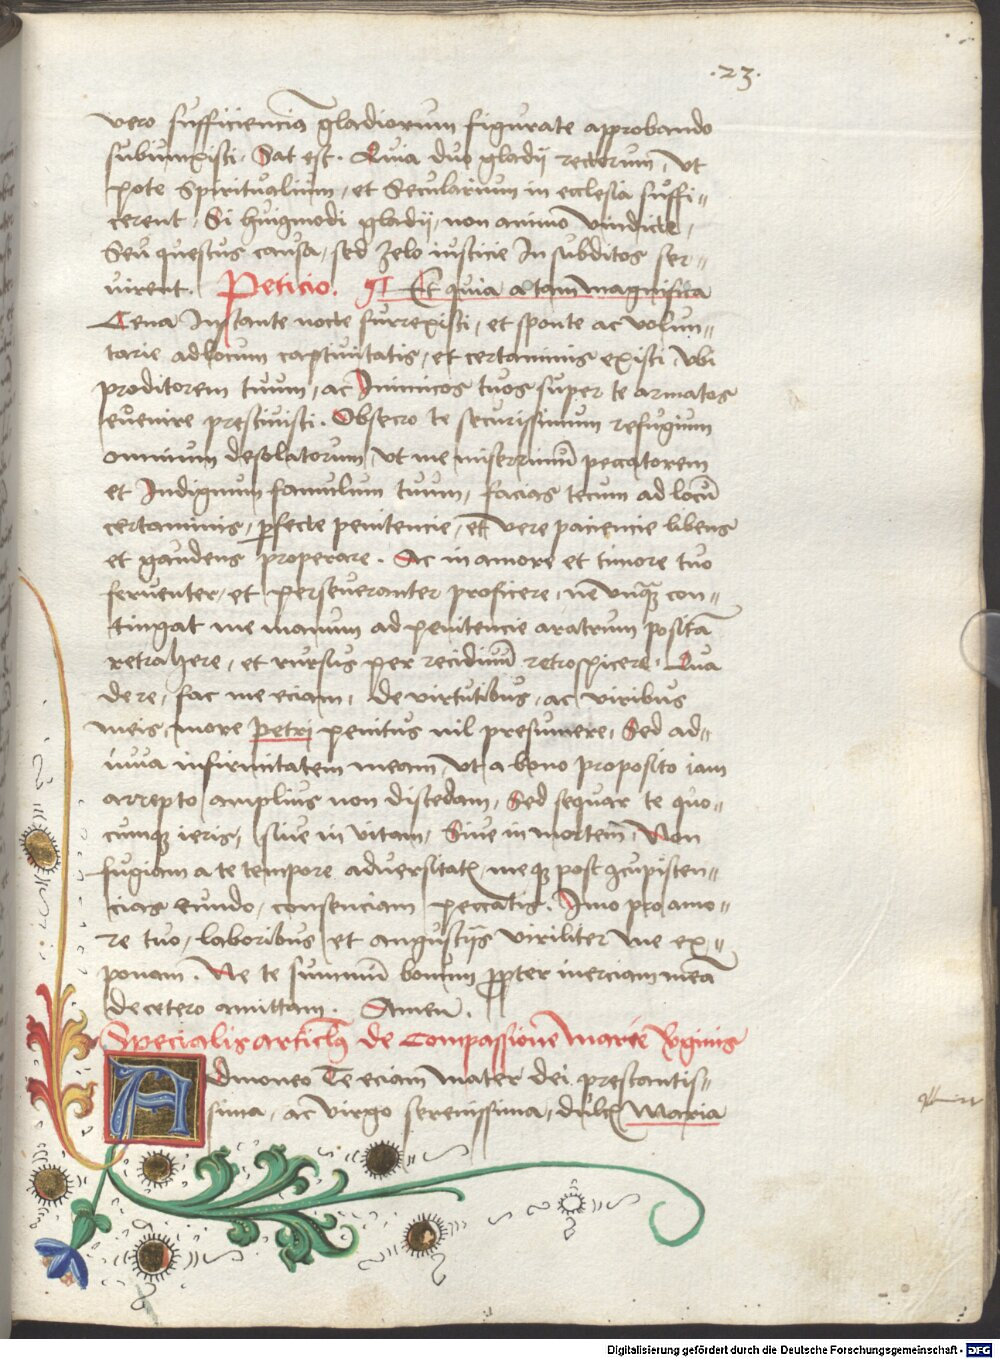 .23.
vero sufficiencia gladiorum figurate approbando
subiunxisti. Sat est. Quia duo gladij rectorum, ut
pote Spiritualium, et Secularium in ecclesia suffi=
cerent, Si huigmodi gladij, non animo vindicte,
Seu questus causa, sed zelo iusticie In subditos ser=
virent. Peticio. ¶ Et quia a tam magnifica
Cena Instante nocte surrexisti, et sponte ac volun=
tarie ad locum captiuitatis, et certaminis existi vbi
proditorem tuum, ac Inimicos tuos super te armatos
euenire presciuisti. Obsecro te securissimum refugium
omnium desolatorum, vt me miserrimū peccatorem
et Indignum famulum tuum, facias tecum ad locū
certaminis, pfecte penitencie, et vere paciencie libens
et gaudens properare. Ac in amore et timore tuo
feruenter, et perseueranter proficere, ne vnq̄ con=
tingat me manum ad penitencie aratrum positā
retrahere, et rursus per recidiuū retrospicere. Qua
dere, fac me eciam, de virtutibus, ac viribus
meis, more Petri penitus nil presumere, Sed ad=
iuua infirmitatem meam, vt a bono proposito iam
arrepto amplius non discedam, Sed sequar te quo=
cumq; ieris, siue in vitam, Siue in mortem, Non
fugiam a te tempore aduersitatꝭ, neq; post ꝯcupiscen=
cias eundo, consenciam peccatis. Imo pro amo=
re tuo, laboribus et angustijs viriliter me ex=
ponam. Ne te summū bonum ppter inerciam meā
decetero amittam. Amen.
Specialis articlus de Compassione Marie Vginis
Admoneo Te eciam mater dei prestantis=
sima, ac virgo serenissima, dulcꝭ Maria
Digitalisierung gefördert durch die Deutsche Forschungsgemeinschaft - DFG